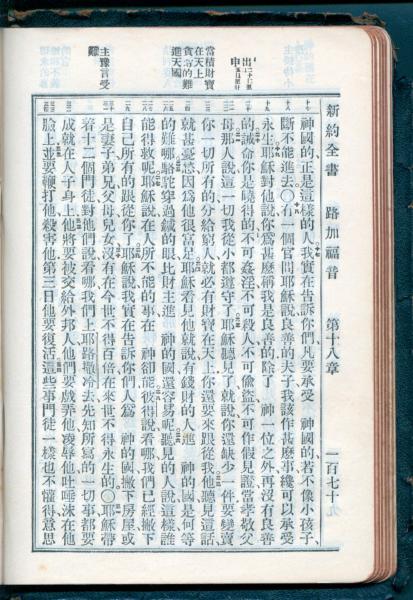 新約全書 路加福音 第十八章 一百七十九
出
申
當積財寶
在天上
貪富的難
進天國
主豫言受
難
神國的正是這樣的人我實在告訴你們凡要承受 神國的若不像小孩子
斷不能進去○有一個官問耶穌說良善的夫子我該作甚麼事纔可以承受
永生耶穌對他說你爲甚麼稱我是良善的除了 神一位之外再沒有良善
的誡命你是曉得的不可姦淫不可殺人不可偷盜不可作假見證當孝敬父
母那人說這一切我從小都遵守了耶穌聽見了就說你還缺少一件要變賣
你一切所有的分給窮人就必有財寶在天上你還要來跟從我他聽見這話
就甚憂愁因爲他很富足耶穌看見他就說有錢財的人進 神的國是何等
的難哪駱駝穿過鍼的眼比財主進 神的國還容易呢聽見的人說這樣誰
能得救呢耶穌說在人所不能的事在 神卻能彼得說看哪我們已經撇下
自己所有的跟從你了耶穌說我實在告訴你們人爲 神的國撇下房屋或
是妻子弟兄父母兒女沒有在今世不得百倍在來世不得永生的○耶穌帶
着十二個門徒對他們說看哪我們上耶路撒冷去先知所寫的一切事都要
成就在人子身上他將要被交給外邦人他們要戲弄他凌辱他吐唾沫在他
臉上並要鞭打他殺害他第三日他要復活這些事門徒一樣也不懂得意思